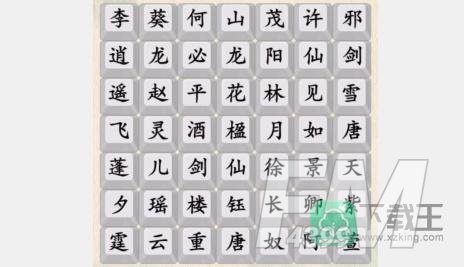 李葵何山茂许邪
逍龙必龙阳仙剑
遥赵平花林见雪
飞灵酒楹月如唐
蓬儿剑仙徐景天
夕瑶楼钰长卿紫
霆云重唐奴阿萱
下载王
www.xzking.com